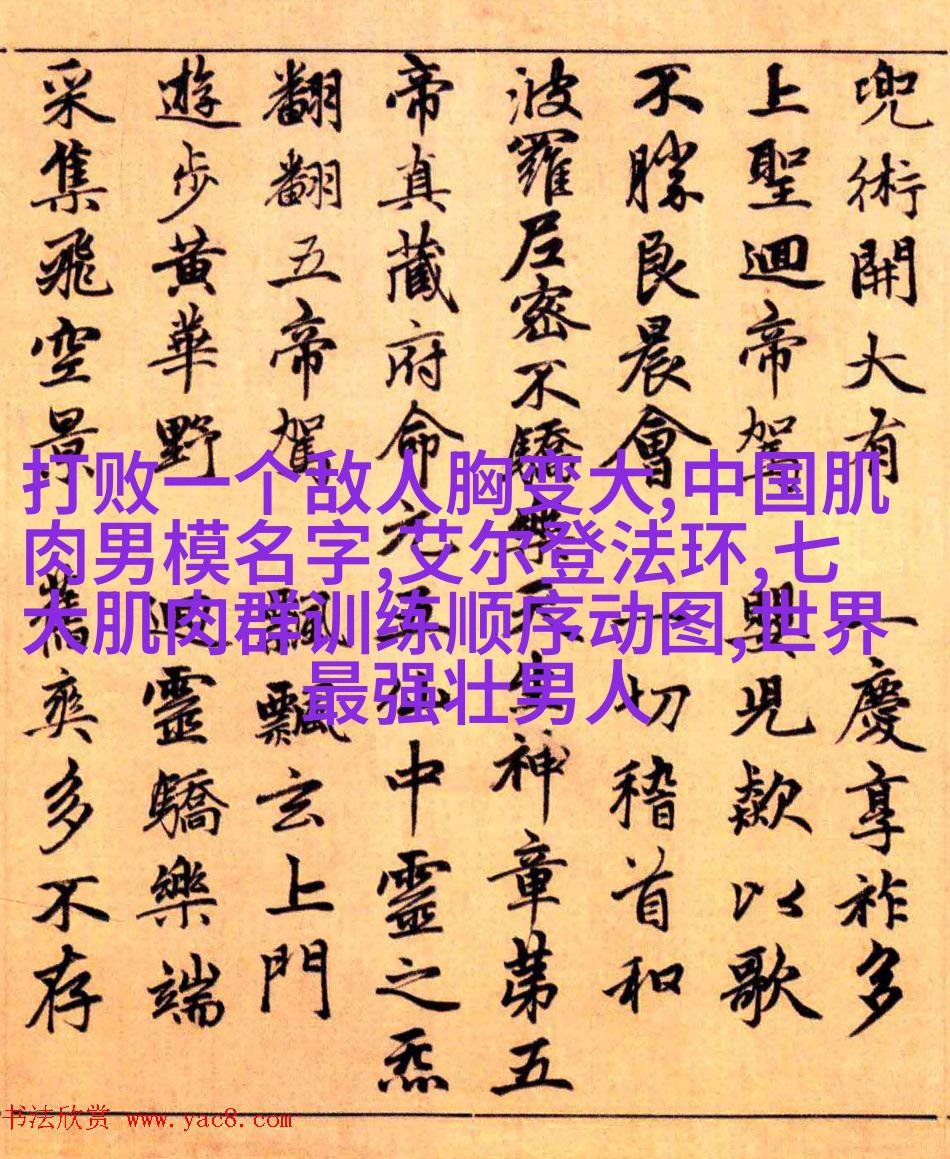 兜術開大有 一慶享祚多
上聖迴帝駕 歎以歌
不勝良晨會 一切稽首和
波羅尼密不驕樂天生神章第五
帝真藏府命元真仙中靈之炁
翩翩五帝駕 飄飄玄上門
遊步黃華野 迴靈驕樂端
采集飛空景 舊爽多不存
打败一个敌人胸变大,中国肌
肉男模名字,艾尔登法环,七
大肌肉群训练顺序动图,世界
最强壮男人
书法欣赏 www.yac8.com